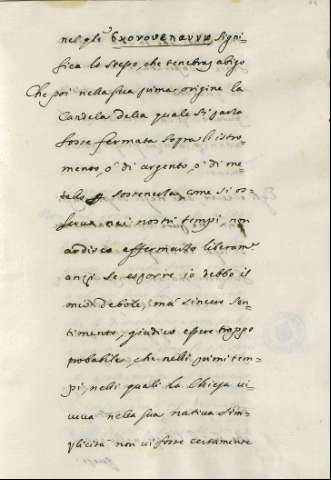 nel qle σχοτουεπαννω signi=
fica lo stesso, che tenebras abigo
Che poi nella sua prima origine la
Candela della quale si parla
fosse fermata sopra l'istro=
mento, ò di argento, ò di me=
tallo p sostenerla come si os=
serva nei nostri tempi, non
ardisco affermarlo liberam.te
anzi se esporre io debbo il
mio debole, mà sincero sen=
timento, giudico essere troppo
probabile, che nelli primi tem=
pi, nelli quali la Chiesa vi=
veva nella sua nativa sim=
plicità non vi fosse certamente